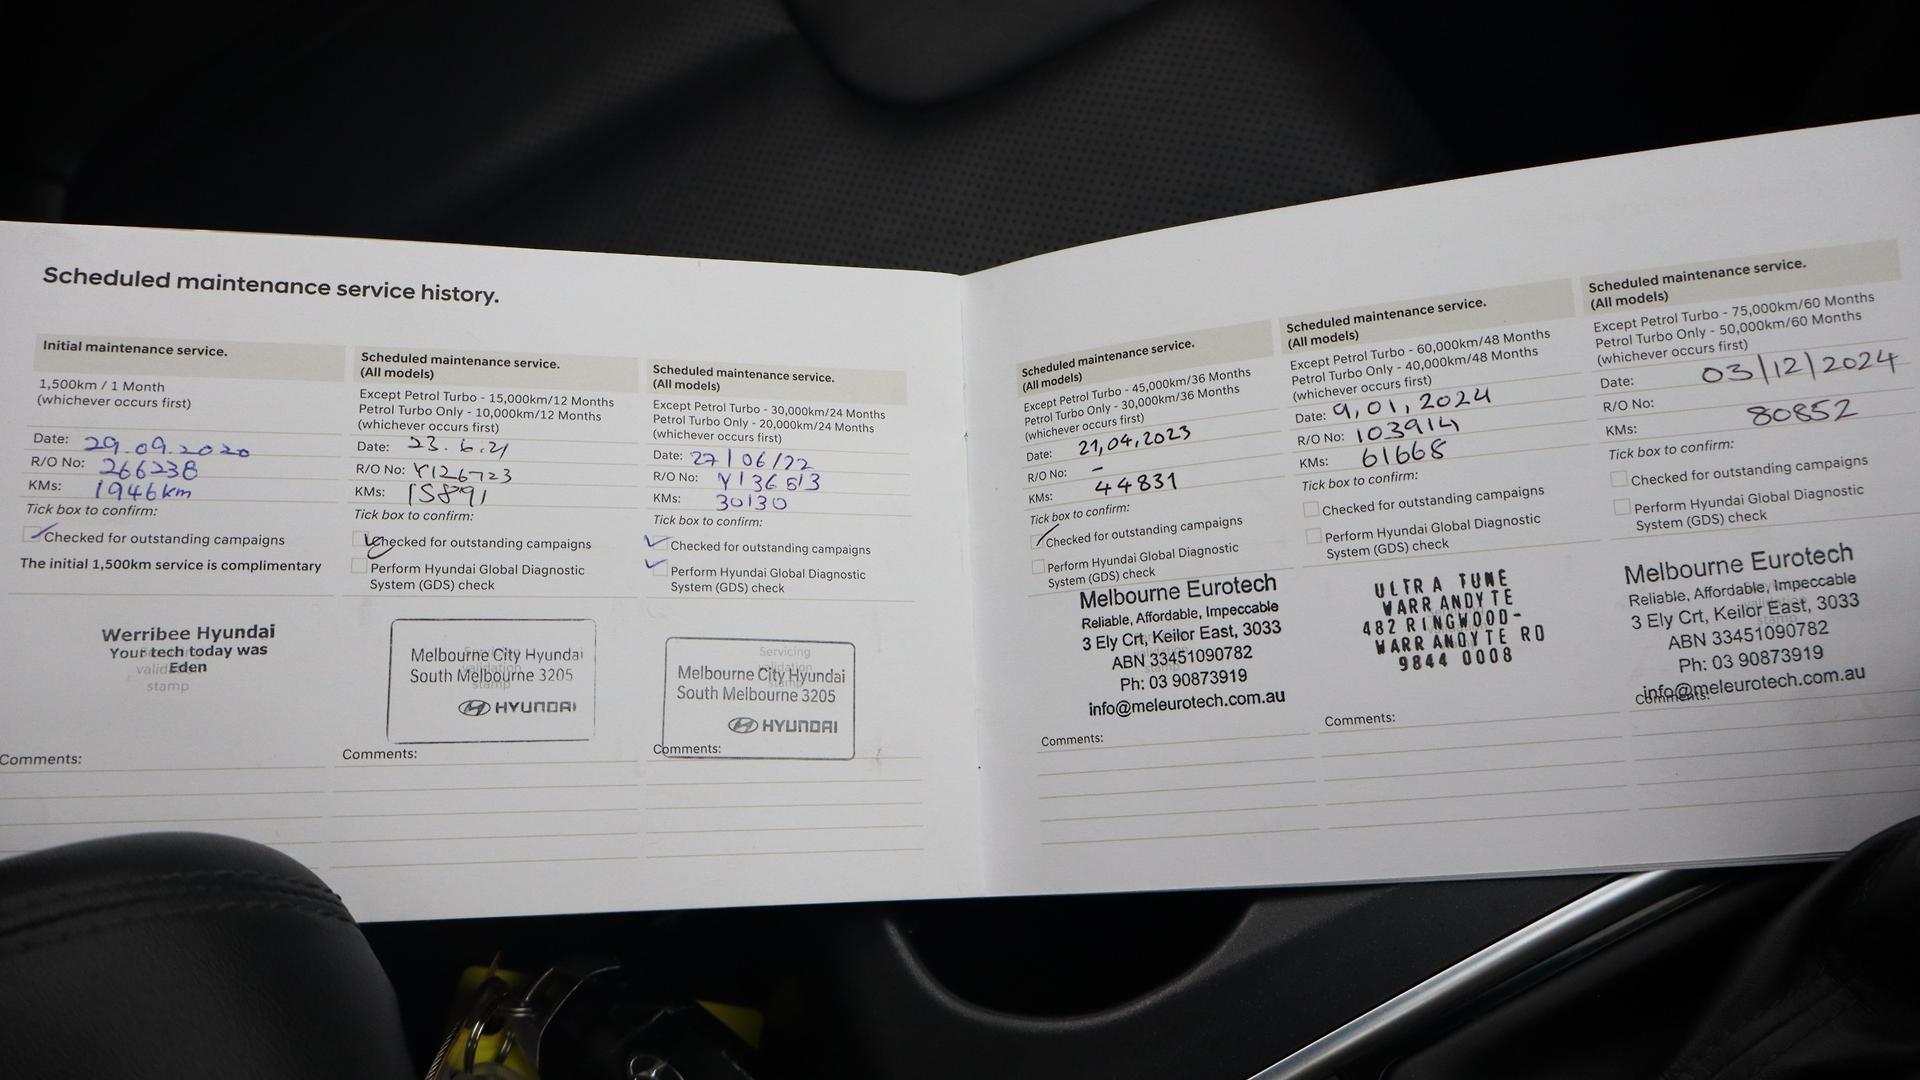 Scheduled maintenance service history.
Initial maintenance service.
1,500km / 1 Month
(whichever occurs first)
Date: 29.09.2020
R/O No: 266238
KMs: 1946km
Tick box to confirm:
Checked for outstanding campaigns
The initial 1,500km service is complimentary
Werribee Hyundai
Your tech today was
Eden
validation
stamp
Comments:
Scheduled maintenance service.
(All models)
Except Petrol Turbo - 15,000km/12 Months
Petrol Turbo Only - 10,000km/12 Months
(whichever occurs first)
Date: 23.6.21
R/O No: Y126723
KMs: 15891
Tick box to confirm:
Checked for outstanding campaigns
Perform Hyundai Global Diagnostic
System (GDS) check
Melbourne City Hyundai
South Melbourne 3205
stamp
HYUNDAI
Comments:
Scheduled maintenance service.
(All models)
Except Petrol Turbo - 30,000km/24 Months
Petrol Turbo Only - 20,000km/24 Months
(whichever occurs first)
Date: 27/06/22
R/O No: Y136513
KMs: 30130
Tick box to confirm:
Checked for outstanding campaigns
Perform Hyundai Global Diagnostic
System (GDS) check
Servicing
validation
Melbourne City Hyundai
South Melbourne 3205
HYUNDAI
Comments:
Scheduled maintenance service.
(All models)
Except Petrol Turbo - 45,000km/36 Months
Petrol Turbo Only - 30,000km/36 Months
(whichever occurs first)
Date: 21,04,2023
R/O No: -
KMs: 44831
Tick box to confirm:
Checked for outstanding campaigns
Perform Hyundai Global Diagnostic
System (GDS) check
Melbourne Eurotech
Reliable, Affordable, Impeccable
3 Ely Crt, Keilor East, 3033
ABN 33451090782
Ph: 03 90873919
info@meleurotech.com.au
Comments:
Scheduled maintenance service.
(All models)
Except Petrol Turbo - 60,000km/48 Months
Petrol Turbo Only - 40,000km/48 Months
(whichever occurs first)
Date: 9,01,2024
R/O No: 103914
KMs: 61668
Tick box to confirm:
Checked for outstanding campaigns
Perform Hyundai Global Diagnostic
System (GDS) check
ULTRA TUNE
WARRANDYTE
482 RINGWOOD-
WARRANDYTE RD
9844 0008
Comments:
Scheduled maintenance service.
(All models)
Except Petrol Turbo - 75,000km/60 Months
Petrol Turbo Only - 50,000km/60 Months
(whichever occurs first)
Date: 03/12/2024
R/O No:
KMs: 80852
Tick box to confirm:
Checked for outstanding campaigns
Perform Hyundai Global Diagnostic
System (GDS) check
Melbourne Eurotech
Reliable, Affordable, Impeccable
3 Ely Crt, Keilor East, 3033
ABN 33451090782
Ph: 03 90873919
info@meleurotech.com.au
Comments: